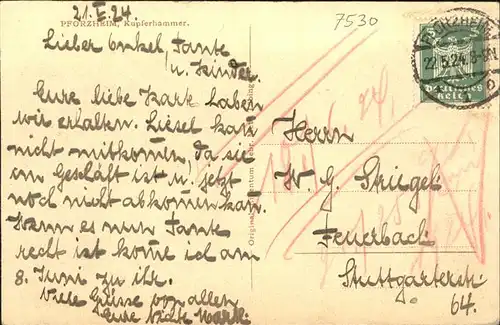 21.V.24.
PFORZHEIM, Kupferhammer.
7530
Lieber Onkel, Tante
u. Kinder.
Eure liebe Kark haben
wir erhalten. Liesel kan
nicht mitkomen, da sie
im Geschäft ist u. jetzt
noch nicht abkomen kan.
Wenn es nun Tante
recht ist kome ich am
8. Juni zu ihr.
Viele Grüsse von allen
Eure Nichte
PFORZHEIM
22.5.24.
Deutsches
Reich
Herrn
W. G. Striegel
Feuerbach
Stuttgarterstr
64.